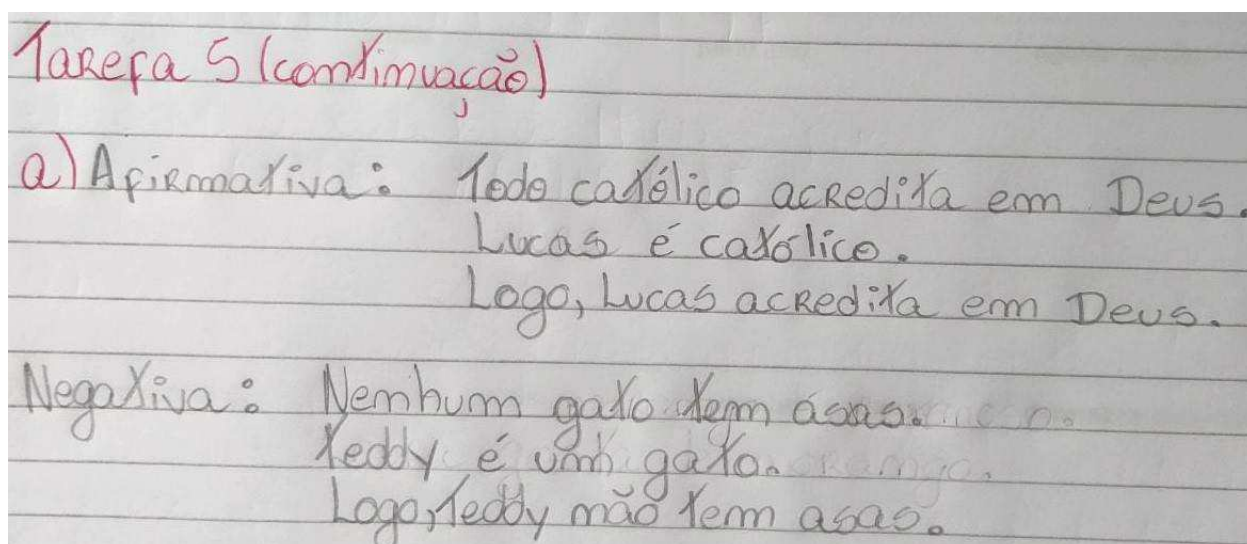 Tarefa 5 (continuação)
a) Afirmativa: Todo católico acredita em Deus.
Lucas é católico.
Logo, Lucas acredita em Deus.
Negativa: Nenhum gato tem ásas.
Teddy é um gato.
Logo, Teddy não tem asas.